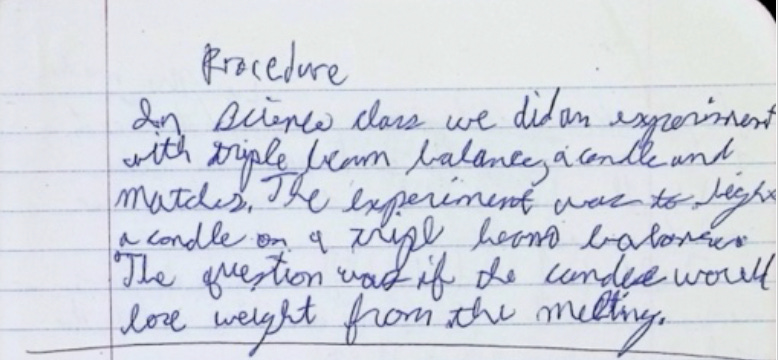 Procedure
In Science class we did an experiment
with triple beam balance, a candle and
matches. The experiment was to light
a candle on a tripl beam balance.
The question was if the candle would
lose weight from the melting.